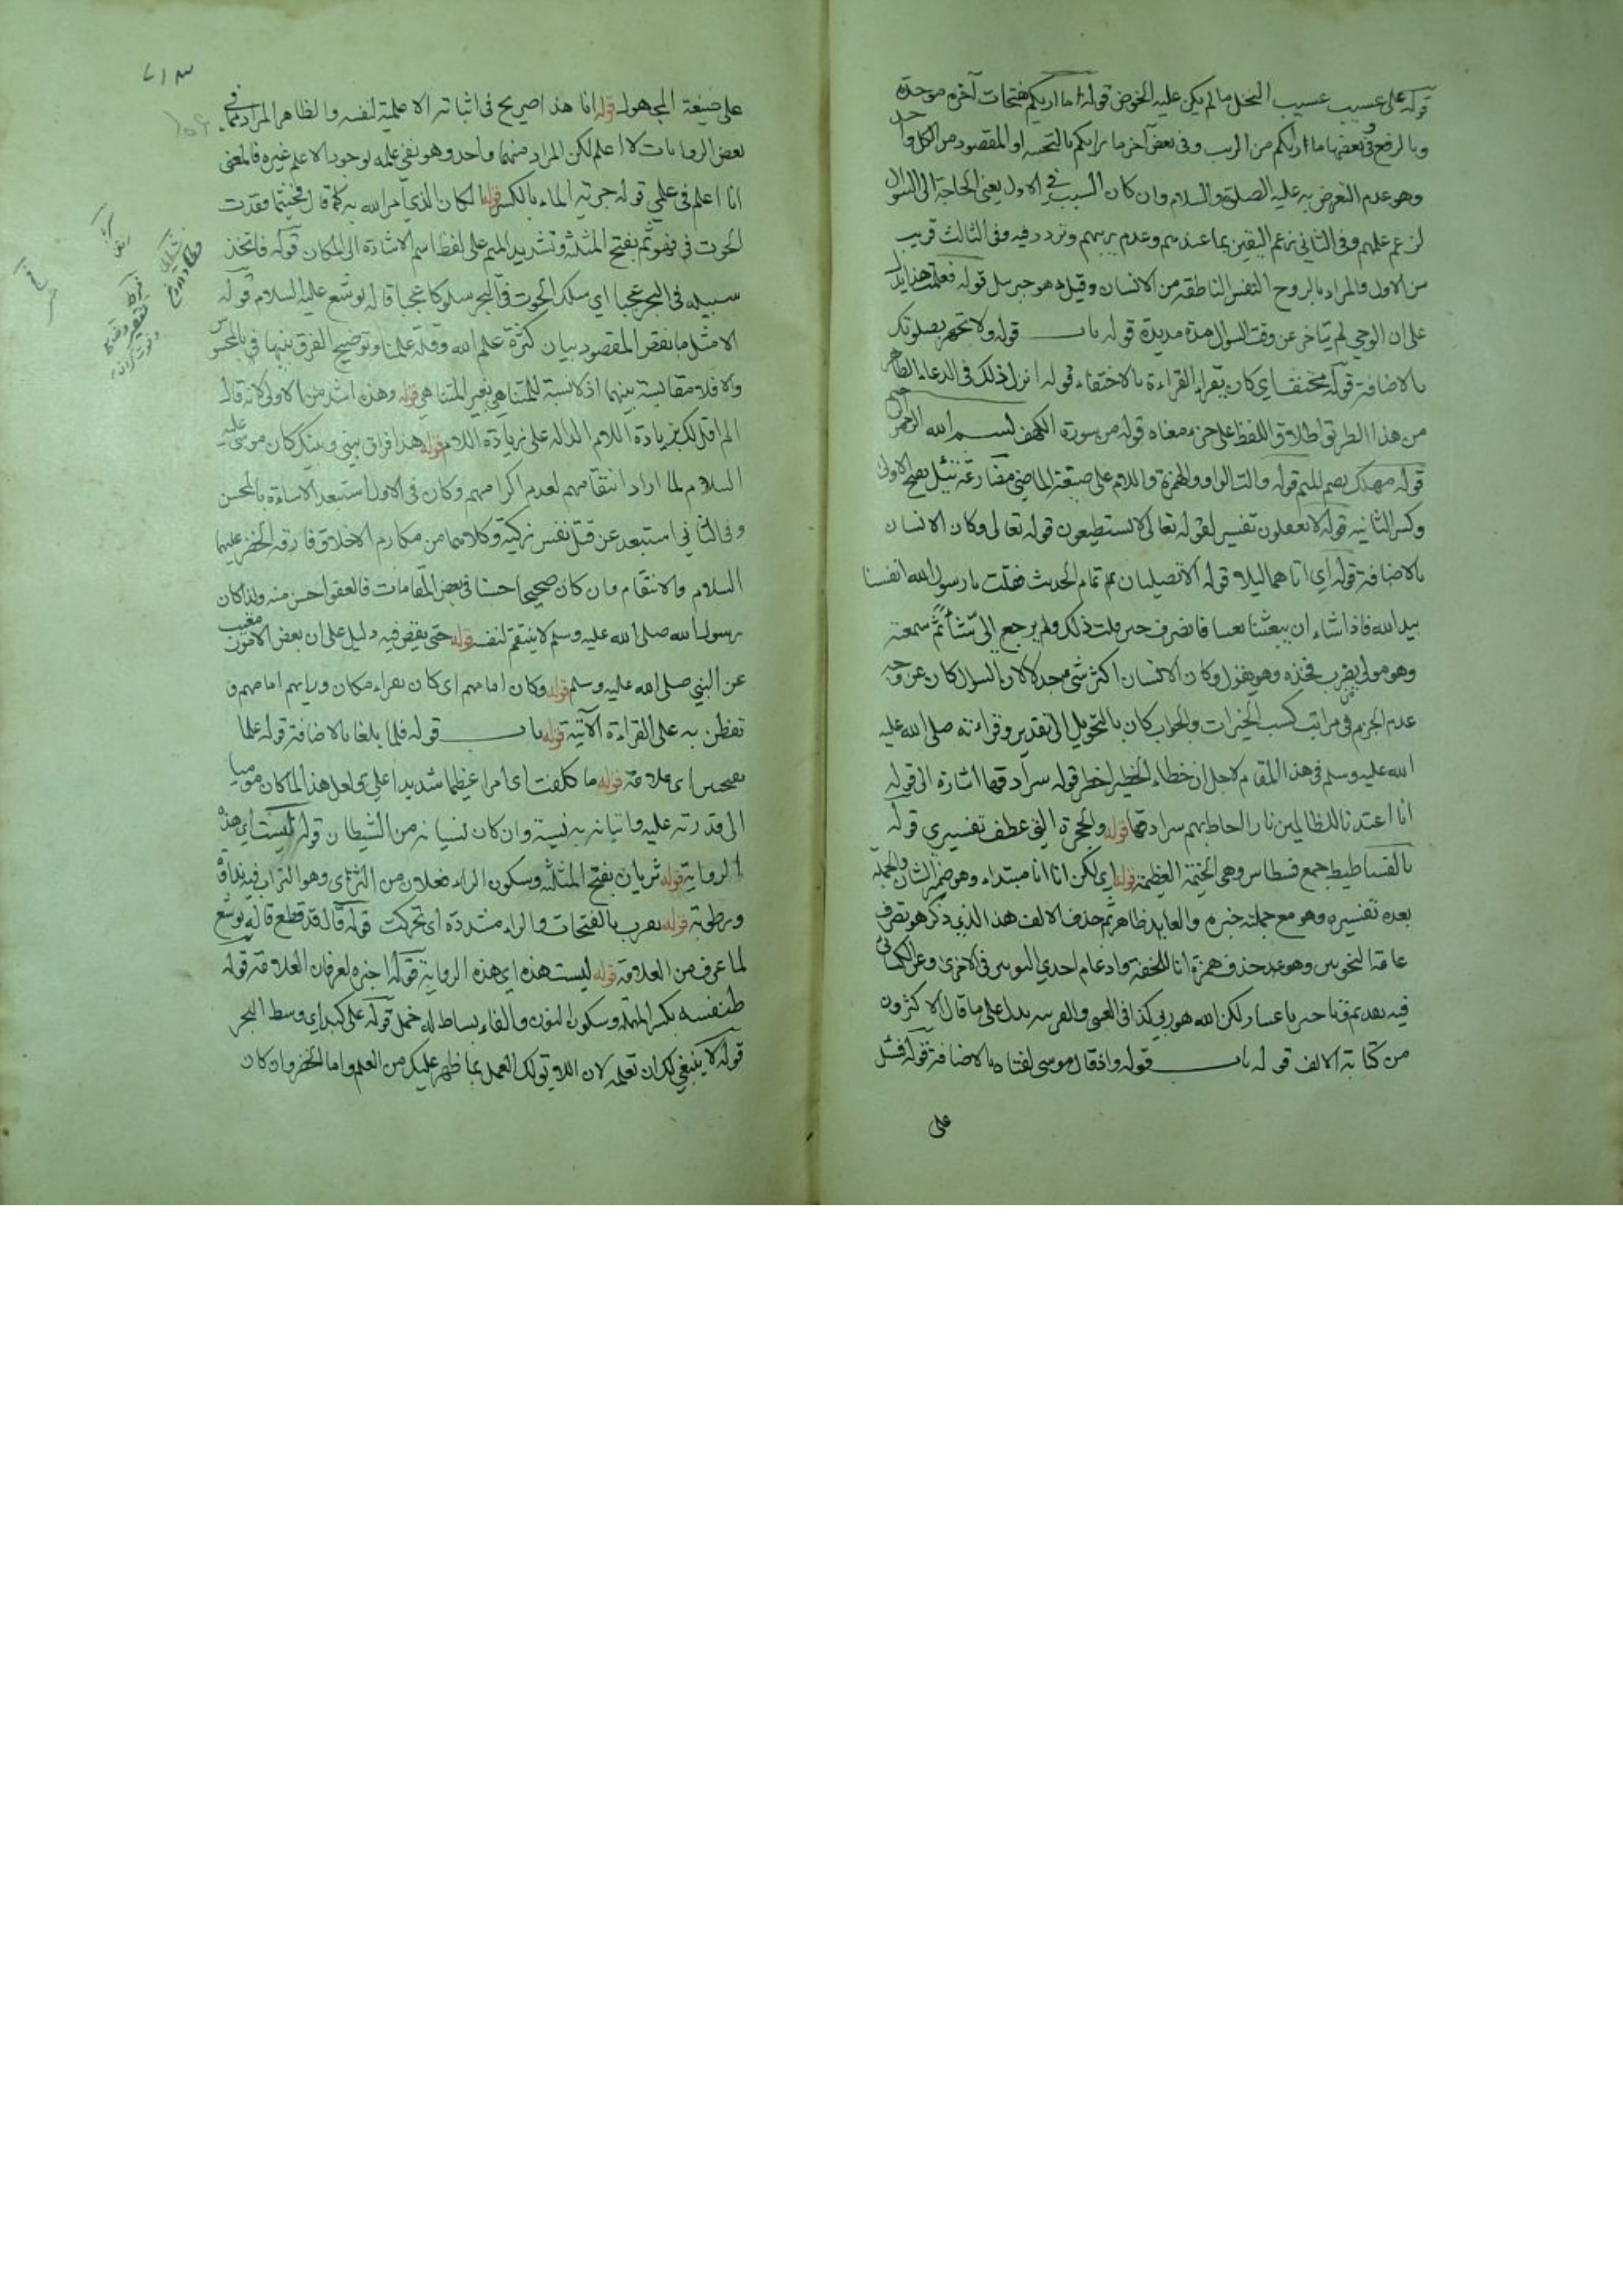 قوله على عسيب عسيب النخل ما لم يكن عليه الخوض قوله اما ارابكم بفتحات آخره موحدة
وبالرفع وفي بعضها ما ارابكم من الريب وفي بعض آخر ما رابكم بالتحتيه او المقصود من الكل واحد
وهو عدم التعرض به عليه الصلوة والسلام وان كان السبب في الاول يعني الحاجة الى السوال
لزعم علمهم وفي الثاني زعم اليقين بما عندهم وعدم ريبهم وتردد فيه وفي الثالث قريب
من الاول والمراد بالروح النفس الناطقة من الانسان وقيل هو جبرسل قوله فعلمت هذا يدل
على ان الوحي لم يتاخر عن وقت السوال مدة مديدة قوله باب قوله ولا تجهر بصلوتك
بالاضافة قوله مختف اي كان يقراء القراءة بالاختفاء قوله انزل ذلك في الدعاء الظاهر
من هذا الطريق اطلاق اللفظ على جزء معناه قوله من سورة الكهف بسم الله الرحمن
قوله مهلك بضم الميم قوله والت الواو والهمزة واللام على صيغة الماضي مضارعه تئل بضم الاولى
وكسر الثانيه قوله لا يعقلون تفسير لقوله تعالى لا يستطيعون قوله تعالى وكان الانسان
بالاضافة قوله اي اتاهما ليلا قوله الا تصليان تم تمام الحديث فقلت يا رسول الله انفسنا
بيد الله فاذا شاء ان يبعثنا بعثنا فانصرف حين قلت ذلك ولم يرجع الى شيئا ثم سمعته
وهو مولي يضرب فخذه وهو يقول وكان الانسان اكثر شي جدلا لان السوال كان عن وجه
عدم الجزم في مراتب كسب الخيرات والجواب كان بالتحويل الى تقدير وقراءته صلى الله عليه
الله عليه وسلم في هذا المقام لاجل ان خطاء الخطير اخطر قوله سرادقها اشارة الى قوله
انا اعتدنا للظالمين نارا احاط بهم سرادقها قوله والحجرة التي عطف تفسيري قوله
بالفساطيط جمع فسطاس وهي الخيمة العظيمة قوله اي لكن انا انا مبتداء وهو ضمير الشان والجملة
بعده تفسيره وهو مع جملته خبره والعايد ظاهر ثم حذف الالف هذا الذي ذكر هو تصرف
عامة النحويين وهو عند حذف همزة انا للخفة وادغام احدي النونين في الاخرى وعن الكسائي
فيه تقديم وتاخير لكن الله هو ربي كذا في العيني على ما قال الاكثرون
من كتابة الالف قوله باب قوله واذ قال موسى لفتاه بالاضافة قوله فسئل
على
على صيغة المجهول قوله انا هذا صريح في اثباته الاعلمية لنفسه والظاهر المراد بما في
بعض الروايات لا اعلم لكن المراد منهما واحد وهو نفي علمه بوجود الاعلم غيره فالمعنى
انا اعلم في علمي قوله جرية الماء بالكسر قوله لكان الذي امر الله به كما قال فحيثما فقدت
الحوت في فهو ثم بفتح المثلثه وتشديد الميم على لفظ اسم الاشارة الى المكان قوله فاتخذ
سبيله في البحر عجبا اي سلك الحوت في البحر سلوكا عجبا قاله يوشع عليه السلام قوله
الا مثل ما نقص المقصود بيان كثرة علم الله وقلة علمنا وتوضيح الفرق بينهما في المحسوس
والا فلا مقايسة بينهما اذ لا نسبة للمتناهي بغير المتناهي قوله وهذه اشد من الاولى لانه قال
الم اقل لك بزيادة اللام الدالة على زيادة اللام قوله هذا فراق بيني وبينك كان موسى عليه
السلام لما اراد انتقامهم لعدم اكرامهم وكان في الاول استبعد الاساءة بالمحسن
وفي الثاني استبعد عن قتل نفس زكية وكلاهما من مكارم الاخلاق فارقه الخضر عليهما
السلام والانتقام وان كان صحيحا حسنا في بعض المقامات فالعفو احسن منه ولذا كان
رسول الله صلى الله عليه وسلم لا ينتقم لنفسه قوله حتى يقص فيه دليل على ان بعض الامور مغيب
عن النبي صلى الله عليه وسلم قوله وكان امامهم اي كان يقراء مكان ورايهم امامهم و
تفطن به على القراءة الآتية قوله باب قوله فلما بلغا بالاضافة قوله علما
اي علامة قوله ما كلفت اي امرا عظيما شديدا علي ولعل هذا لما كان موميا
الى قدرته عليه واتيانه به نسيه وان كان نسيانه من الشيطان قوله ليست اي هذه
الرواية قوله ثريان بفتح المثلثه وسكون الراء فعلان من الثرى وهو التراب فيه نداوة
ورطوبة قوله تضرب بالفتحات والراء مشددة اي تحركت قوله قال قد قطع قاله يوشع
لما عرف من العلامة قوله ليست هذه اي هذه الرواية قوله اخبره لعرفان العلامة قوله
طنفسه بكسر المهمله وسكون النون والفاء بساط له خمل قوله على كبد اي وسط البحر
قوله لا ينبغي لك ان تعلمه لان اللايق لك العمل بما ظهر عليك من العلم واما الخضر وان كان